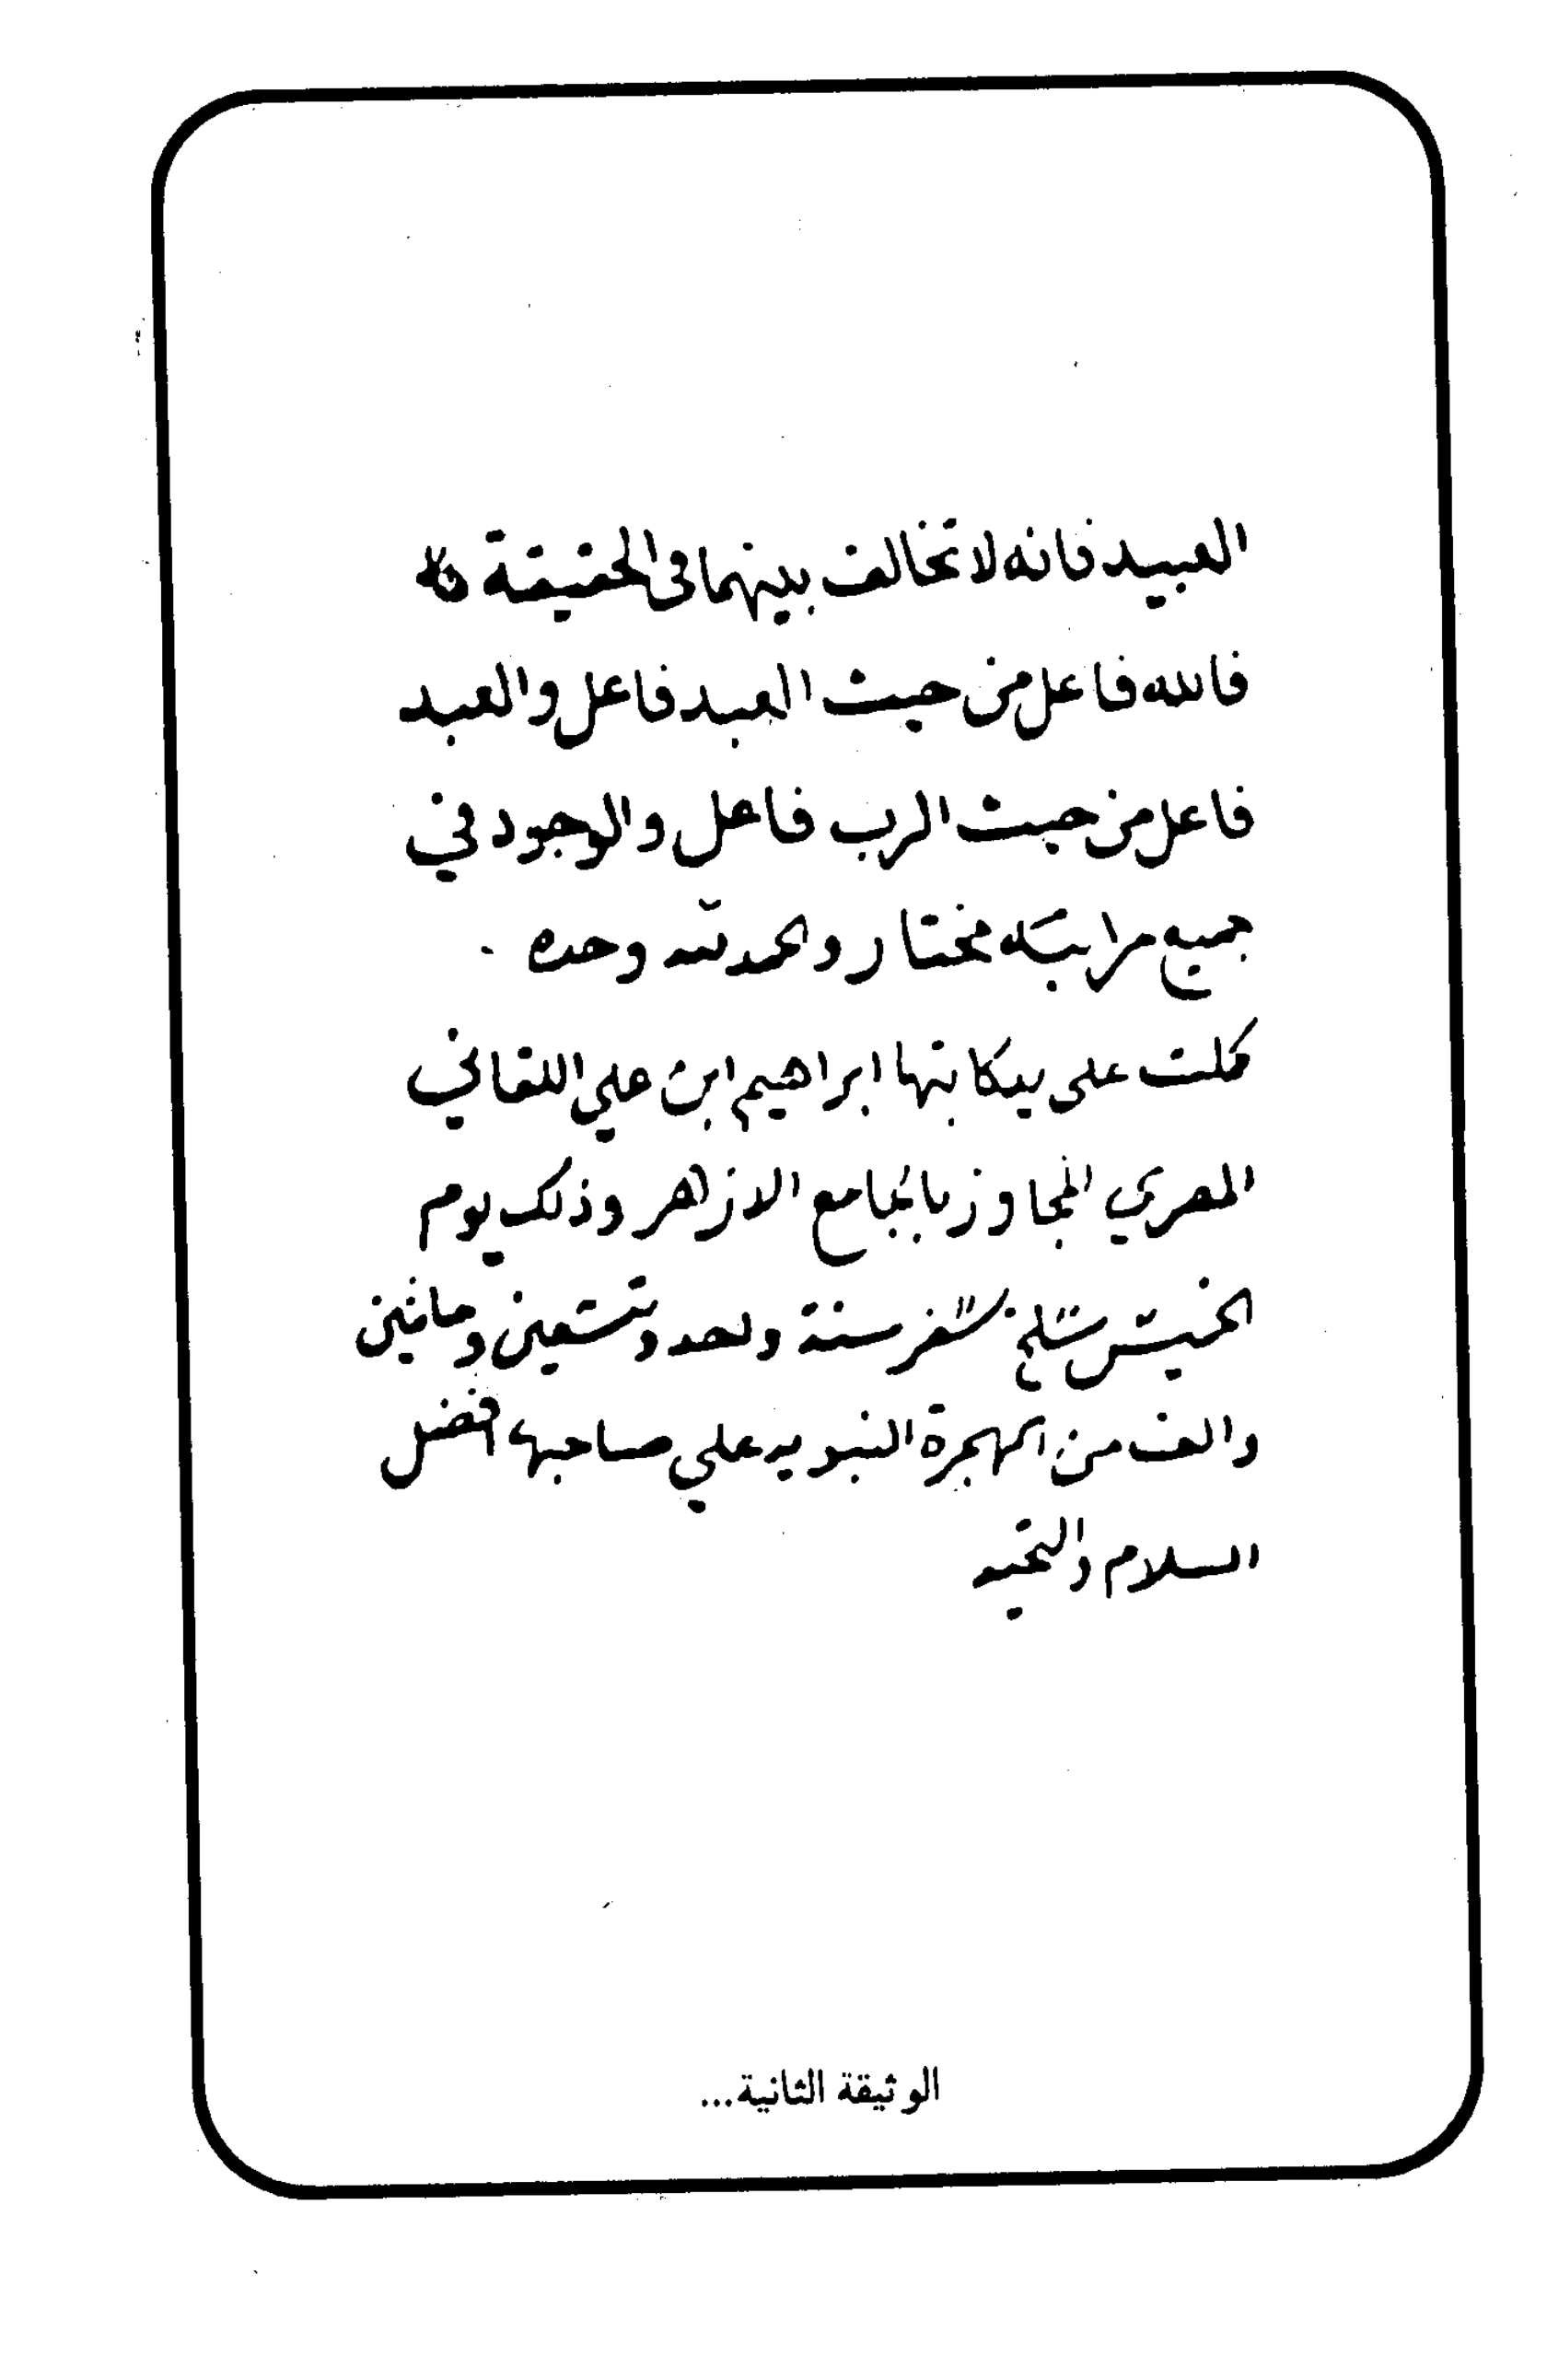 العبيد فانه لا تخالف بينهما فى الحقيقة
فالله فاعل من حيث العبد فاعل والعبد
فاعل من حيث الرب فاعل والوجود في
جميع مراتبه مختار والحمد لله وحده
كملت على يد كاتبها ابراهيم ابن علي اللقاني
المصري المجاور بالجامع الازهر وذلك يوم
الخميس سلخ صفر سنة واحد وتسعين ومائتين
والف من الهجرة النبويه علي صاحبها افضل
السلام والتحيه
الوثيقة الثانية...